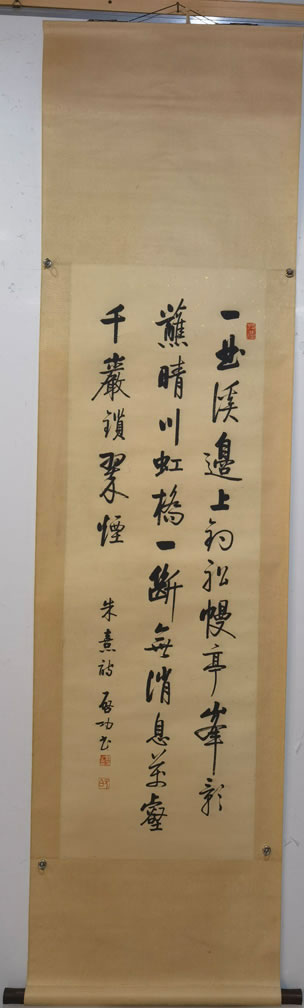 一曲溪邊上釣船幔亭峯影
蘸晴川虹橋一斷無消息萬壑
千巖鎖翠煙
朱熹詩啟功書